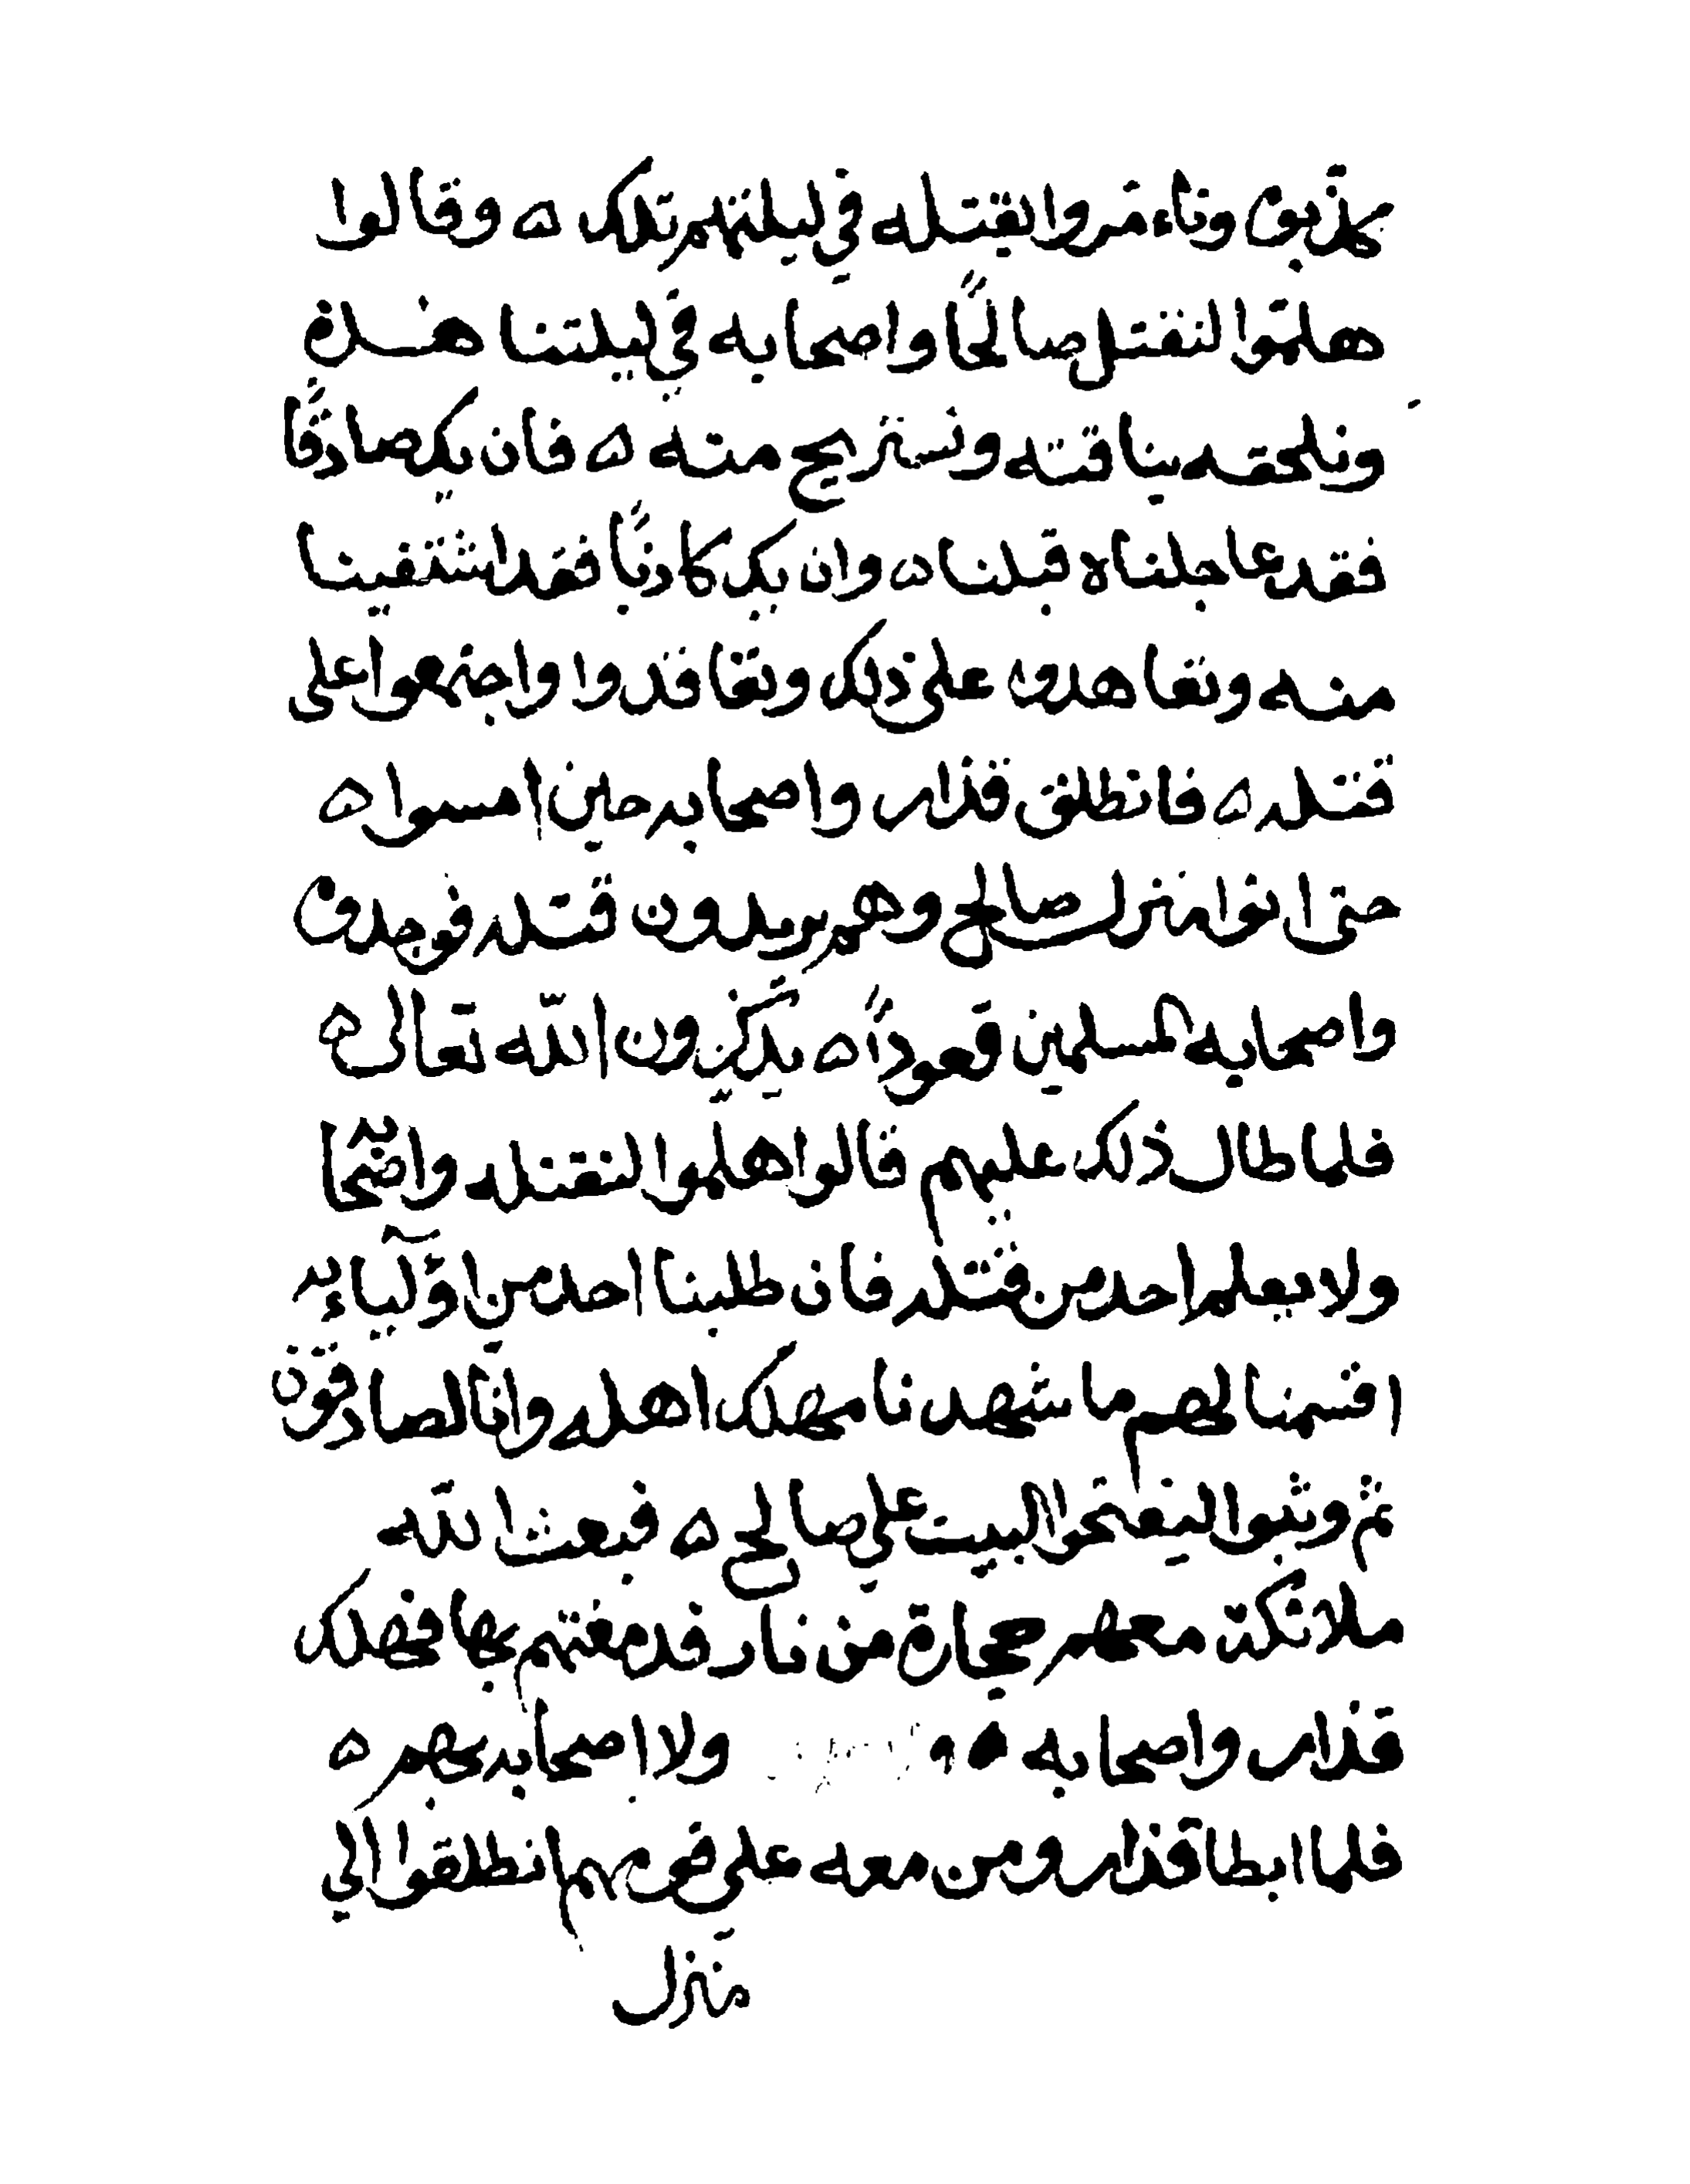 كذبوه وتاءمروا بقتله في ليلتهم تلك ه وقالوا
هلموا لنقتل صالحًا واصحابه في ليلتنا هذه
ونلحقه بناقته ونستريح منه ه فان يك صادقًا
فقد عاجلناه قبلنا ه وان يك كاذبًا فقد اشتفينا
منه وتعاهدوا على ذلك وتعاقدوا واجتمعوا على
قتله ه فانطلق قذار واصحابه حين امسوا ه
حتى اتوا منزل صالح وهم يريدون قتله فوجدوه
واصحابه المسلمين قعودًا ه يذكرون الله تعالى ه
فلما طال ذلك عليهم قالوا هلموا لنقتله واصحابه
ولا يعلم احد من قتله فان طلبنا احد من اوليآءيه
اقسمنا لهم ما شهدنا مهلك اهله وانا لصادقون
ثم وثبوا ليفتحوا البيت على صالح ه فبعث الله
ملائكة معهم حجارة من نار فدمغتهم بها فهلك
قذار واصحابه ولا اصحابه بهم ه
فلما ابطا قذار ومن معه على قومهم انطلقوا الي
منزل